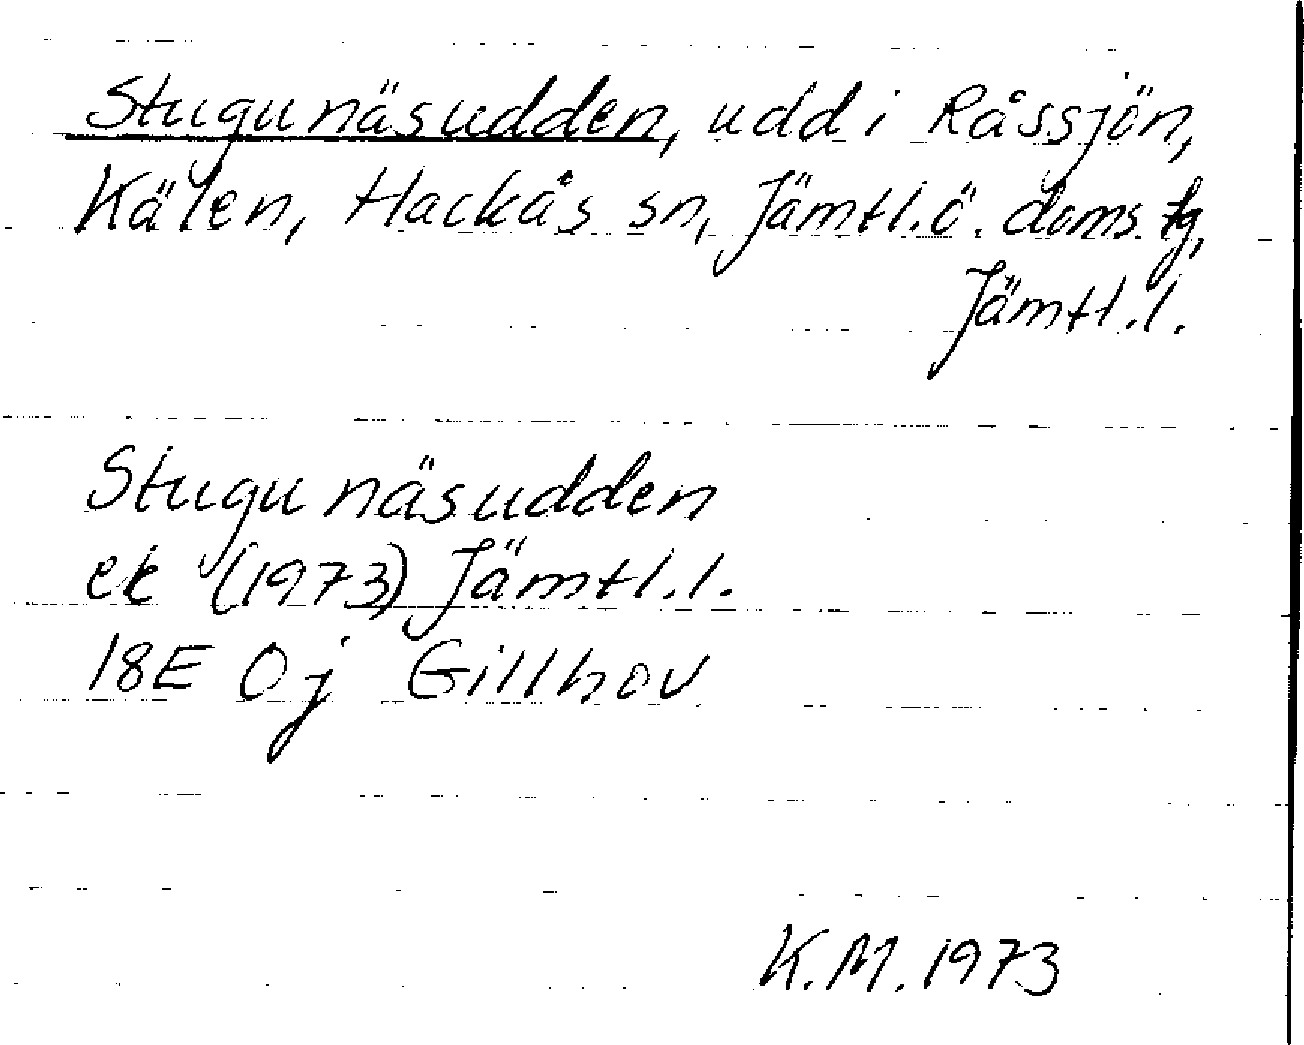 Stugunäsudden, udd i Råssjön,
Kälen, Hackås sn, Jämtl.ö. doms. tg,
Jämtl.l.
Stugunäsudden
ek (1973) Jämtl.l.
18E 0j Gillhov
K.M. 1973